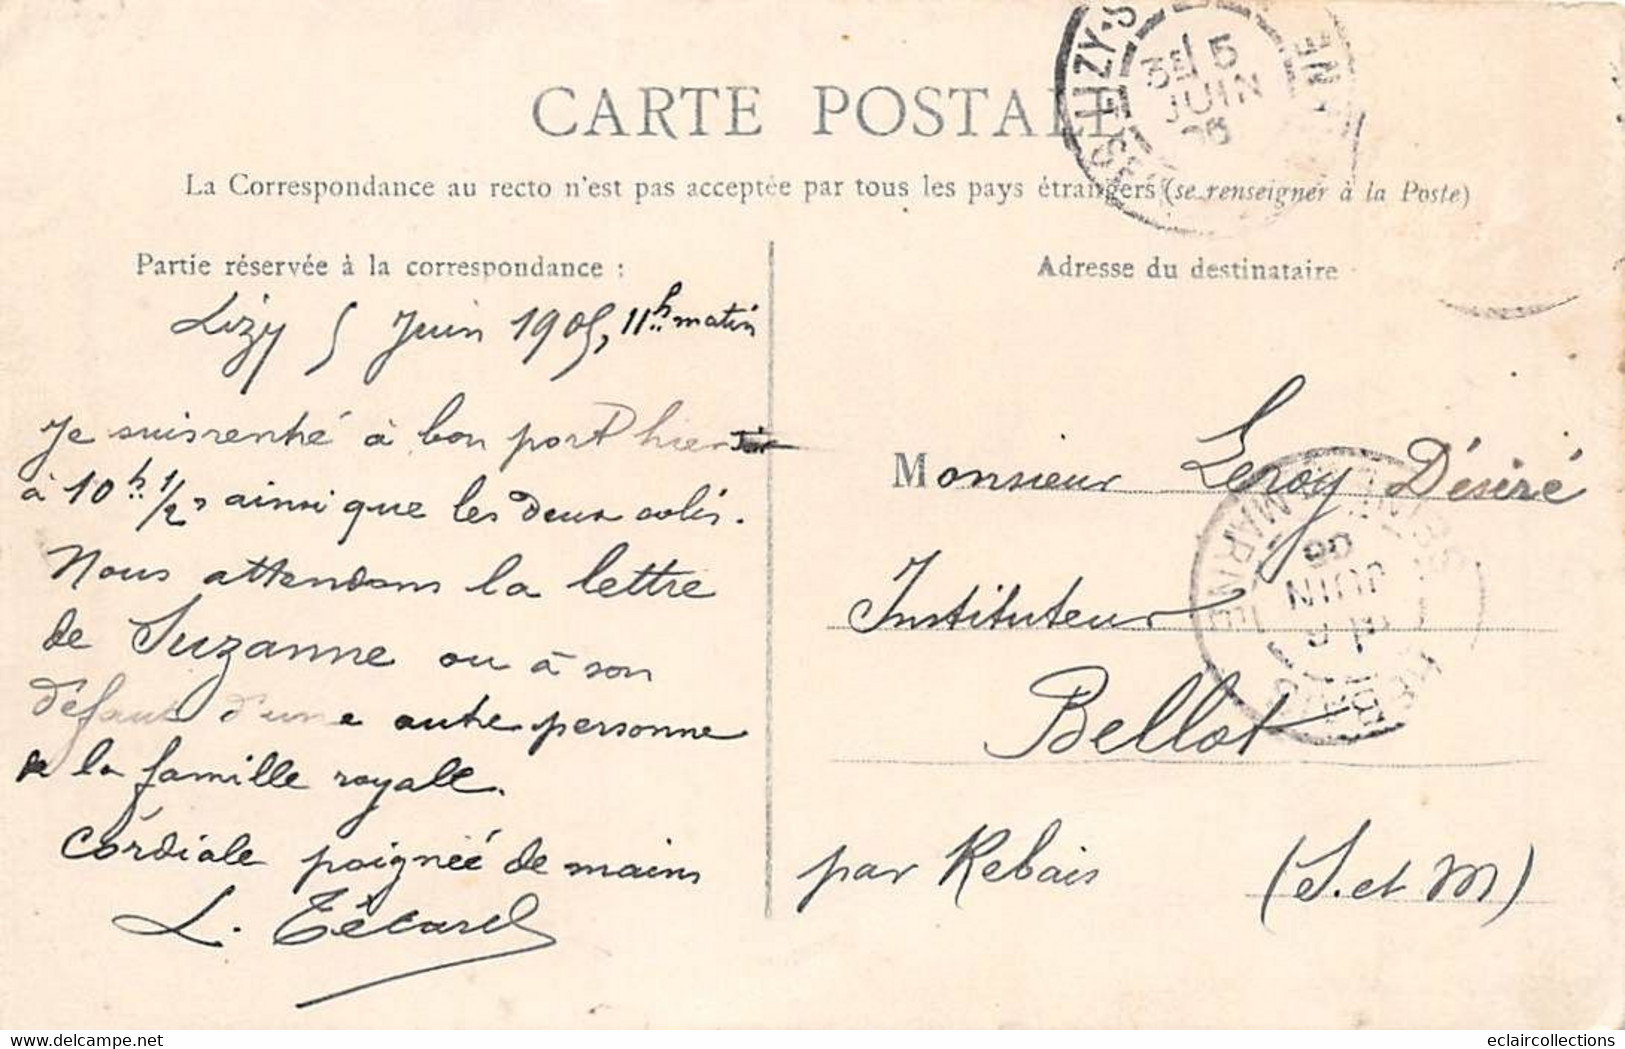 CARTE POSTALE
La Correspondance au recto n'est pas acceptée par tous les pays étrangers (se renseigner à la Poste)
Partie réservée à la correspondance :
Lizy 5 Juin 1905, 11h matin
Je suis rentré à bon port hier soir
à 10h 1/2, ainsi que les deux colis.
Nous attendons la lettre
de Suzanne ou à son
défaut d'une autre personne
de la famille royale.
Cordiale poignée de mains
L. Técard
Adresse du destinataire
Monsieur Leroy Désiré
Instituteur
Bellot
par Rebais (S. et M)
LIZY-S
3E 5
JUIN
JUIN
MARNE
REBAIS
eclaircollections